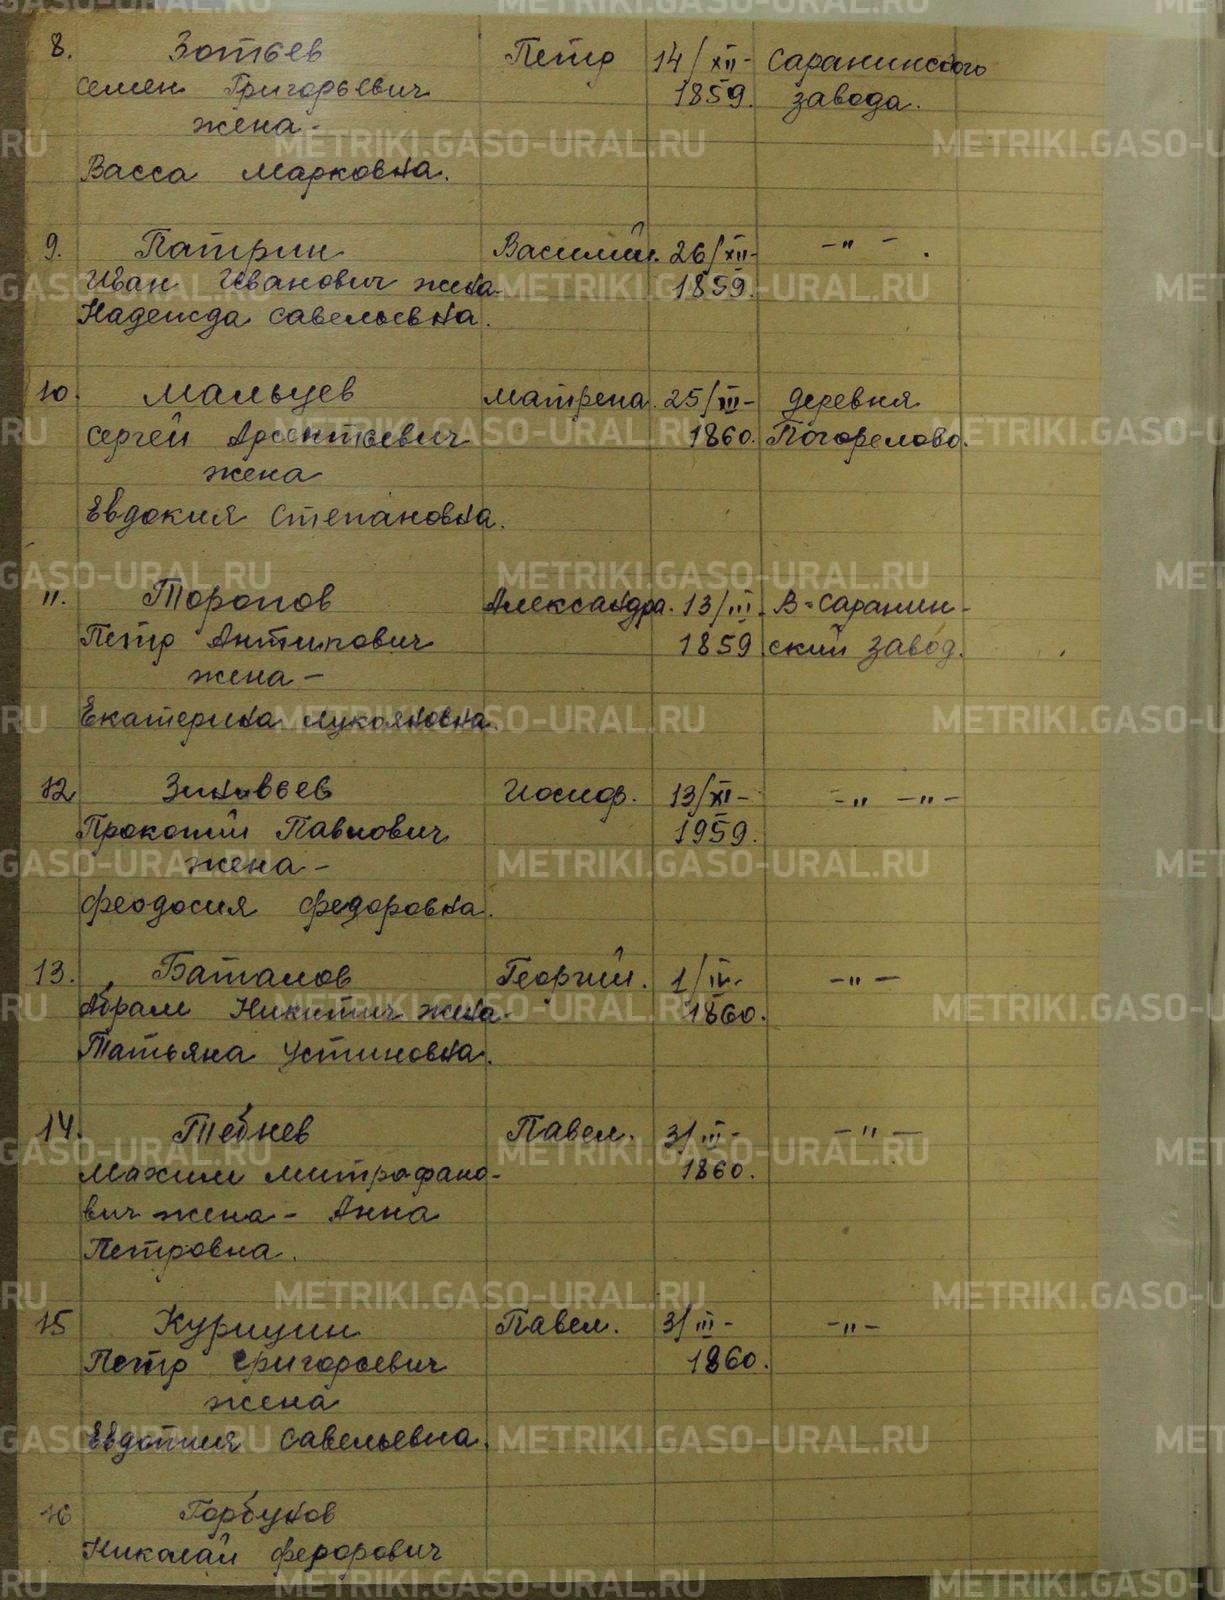 8. Зотьев Петр 14/XII- Саранинского
Семен Григорьевич 1859. завода.
жена -
Васса Марковна.
9. Патрин Василий. 26/XII- -"-
Иван Иванович жена 1859.
Надежда Савельевна.
10. Мальцев Матрена. 25/III- деревня
Сергей Арсентьевич 1860. Погорелово.
жена
Евдокия Степановна.
11. Торопов Александра. 13/III- В-Саранин-
Петр Антипович 1859 ский завод.
жена -
Екатерина Лукояновна.
12 Зиновьев Иосиф. 13/XII- -"-"-
Прокопий Павлович 1959.
жена -
Феодосия Федоровна.
13. Баталов Георгий. 1/IV- -"-
Абрам Никитич жена- 1860.
Татьяна Устиновна.
14. Тебнев Павел. 3/III- -"-
Махсим Митрофано- 1860.
вич жена - Анна
Петровна.
15 Курицин Павел. 3/III- -"-
Петр Григорьевич 1860.
жена
Евдотия Савельевна.
16 Горбунов
Николай Федорович
METRIKI.GASO-URAL.RU